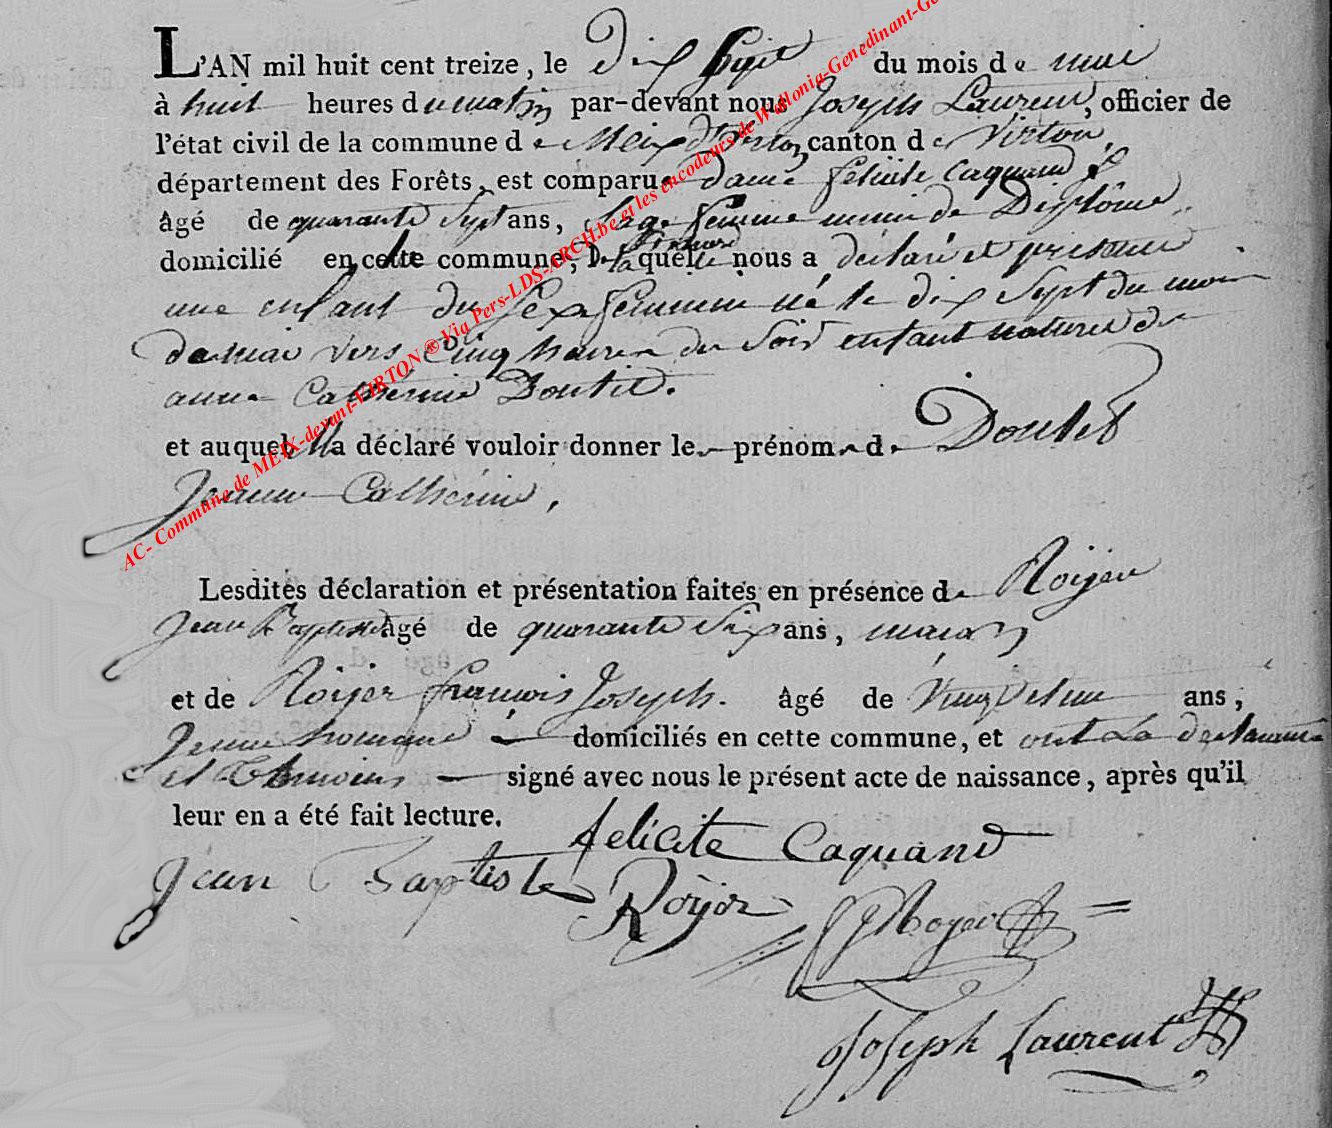 L'AN mil huit cent treize, le Dix Sept du mois de mai
à huit heures du matin par-devant nous Joseph Laurent, officier de
l'état civil de la commune de Meix dt Virton canton de Virton,
département des Forêts, est comparue Dame félicité Caquand
âgé de quarante Sept ans, Sage femme munie de Diplôme
domicilié en cette commune, laquelle nous a déclaré et présenté
une enfant du Sexe féminin né le dix Sept du mois
de mai vers Cinq heures du Soir enfant naturel de
anne Catherine Doutet.
et auquel Ila déclaré vouloir donner le prénom de Doutet
Jeanne Catherine,
Lesdites déclaration et présentation faites en présence de Roijer
Jean Baptiste âgé de quarante Six ans, maçon
et de Roijer françois Joseph. âgé de Vingt et un ans,
Jeune homme domiciliés en cette commune, et ont La déclarante
et témoins signé avec nous le présent acte de naissance, après qu'il
leur en a été fait lecture.
felicite Caquand
Jean Baptiste Roijer
Royer
Joseph Laurent
AC- Commune de MEIX-devant-VIRTON ® Via Pers-LDS-ARCH.be et les encodeurs de Wallonia-Genedinant-Ge